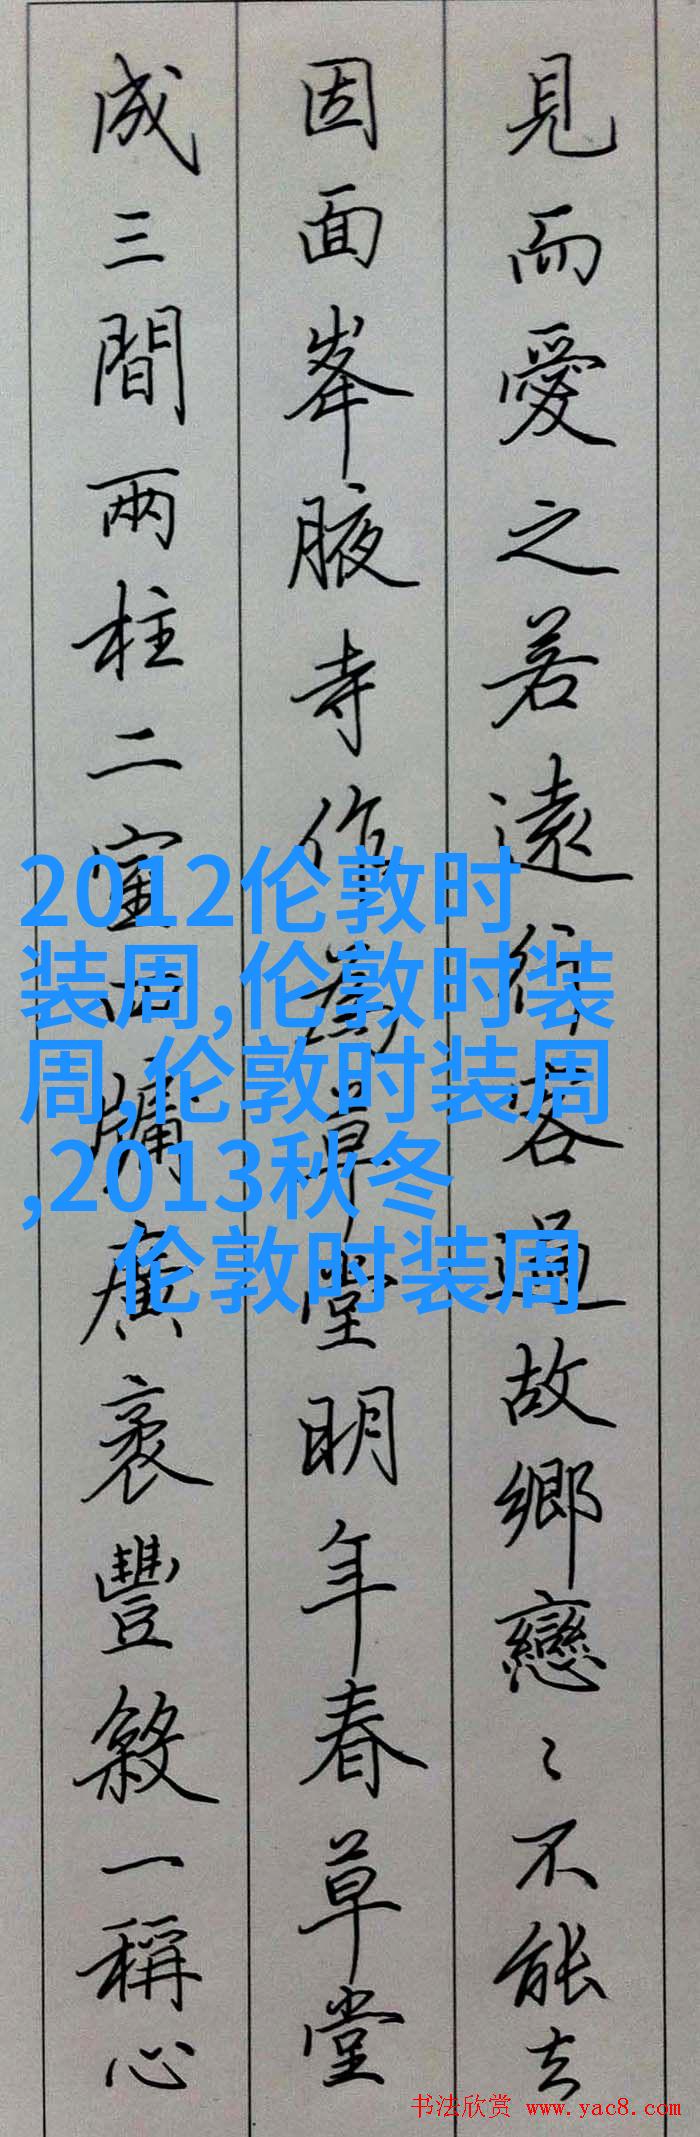 見而愛之若遠行客過故鄉戀〻不能去
因面峯腋寺作為草堂明年春草堂
成三間兩柱二室四牖廣袤豐殺一稱心
2012伦敦时
装周,伦敦时装
周,伦敦时装周
,2013秋冬
伦敦时装周
书法欣赏 www.yac8.com